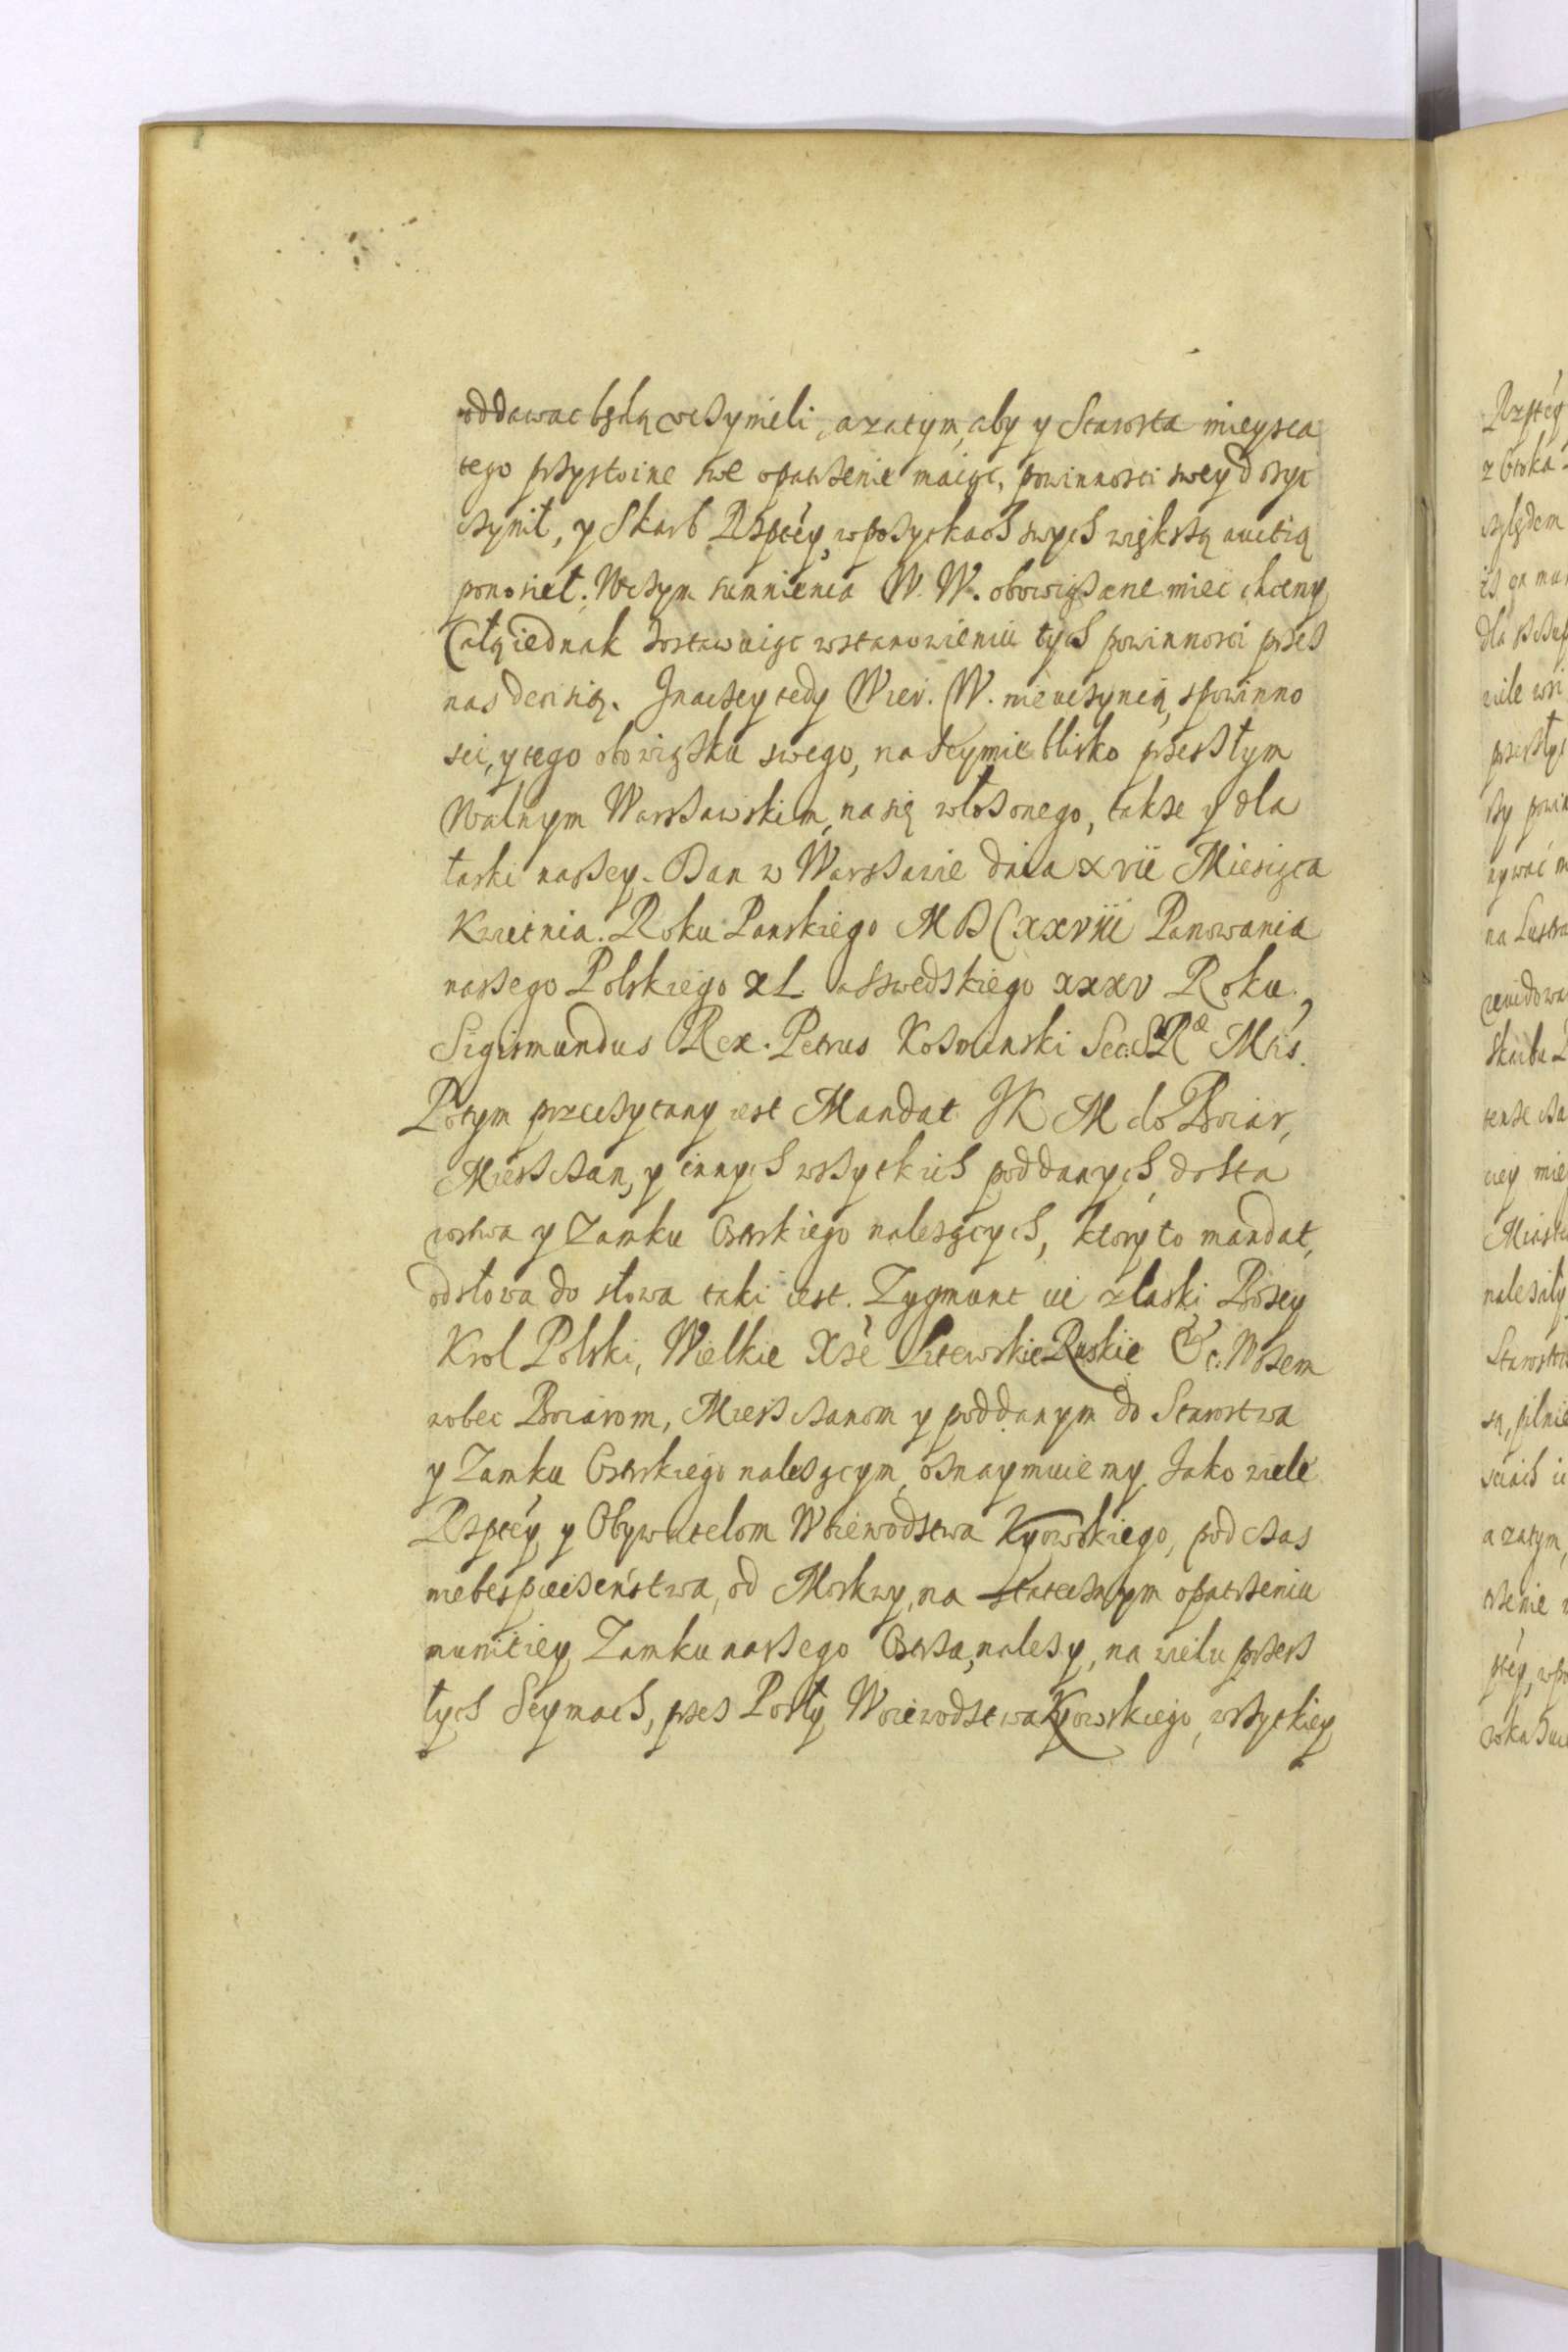 oddawac będą uczynieli, a zatym, aby y Starosta mieysca
tego przystoine swe opatrzenie maiąc, powinnosci swey dosyc
czynił, y Skarb Rzptéy, w pożytkach swych większą auctią
ponosieł. W czym sumnienia W. W. obowiązane miec chcemy
Całą iednak zostawuiąc w stanowieniu tych powinnosci przez
nas decisią. Inaczey tedy Wier. W. nie uczynią, s powinno
sci, y tego obowiązku swego, na Seymie blisko przeszłym
Walnym Warszawskim, na się włożonego, także y dla
łaski naszey. Dan w Warszawie dnia xvii Miesiąca
Kwietnia. Roku Panskiego MDCxxviii Panowania
naszego Polskiego xL a Szwedskiego xxxv Roku,
Sigismundus Rex. Petrus Kozminski Sec. S Ræ Mtis.
Potym przeczytany iest Mandat JK M do Boiar,
Mieszczan, y innych wszytkich poddanych, do Sta
rostwa y Zamku Ostrskiego należących, ktory to mandat,
od słowa do słowa taki iest. Zygmunt iii z łaski Bożey
Krol Polski, Wielkie Xże Litewskie Ruskie &c. Wszem
wobec Boiarom, Mieszczanom y poddanym do Starostwa
y Zamku Ostrskiego należącym, oznaymuiemy. Jako wiele
Rzptéy y Obywatelom Woiewodstwa Kyowskiego, pod czas
niebespieczeństwa, od Moskwy, na statecznym opatrzeniu
municiey Zamku naszego Ostrza, należy, na wielu przesz
łych Seymach, przez Posły Woiewodstwa Kyowskiego, wszytkiey